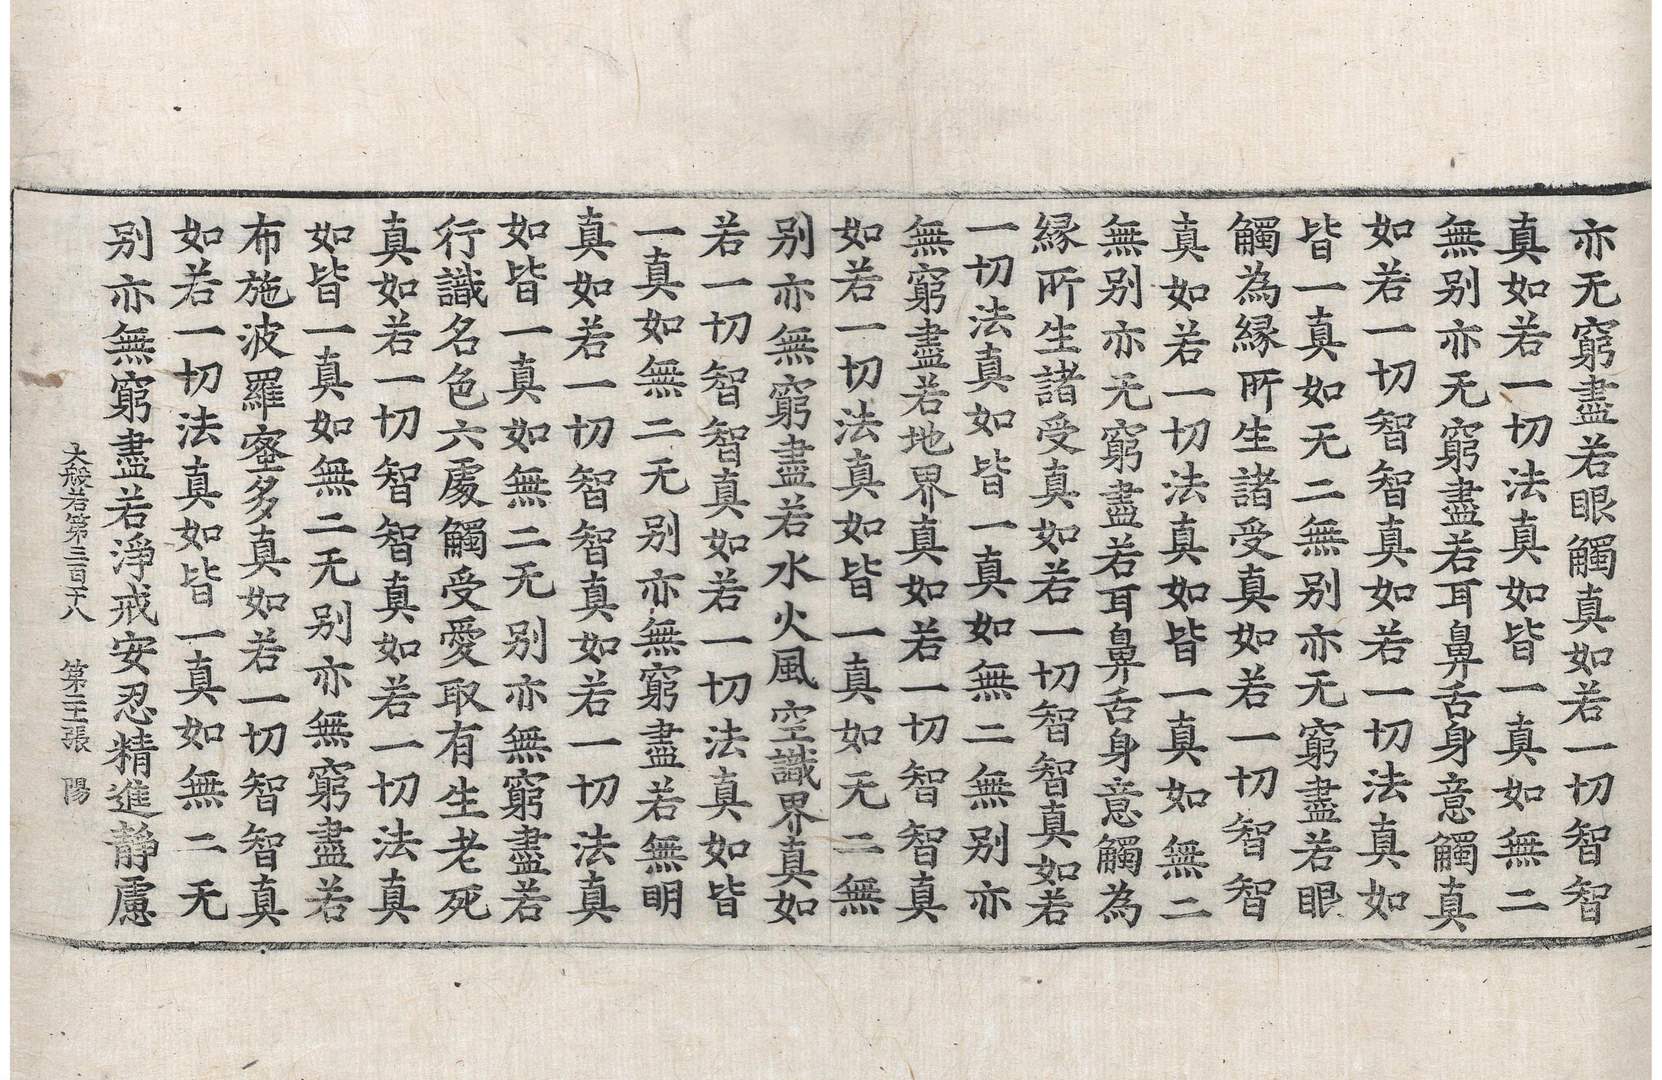 亦无窮盡若眼觸真如若一切智智
真如若一切法真如皆一真如無二
無别亦无窮盡若耳鼻舌身意觸真
如若一切智智真如若一切法真如
皆一真如无二無别亦无窮盡若眼
觸為縁所生諸受真如若一切智智
真如若一切法真如皆一真如無二
無别亦无窮盡若耳鼻舌身意觸為
縁所生諸受真如若一切智智真如若
一切法真如皆一真如無二無别亦
無窮盡若地界真如若一切智智真
如若一切法真如皆一真如无二無
别亦無窮盡若水火風空識界真如
若一切智智真如若一切法真如皆
一真如無二无别亦無窮盡若無明
真如若一切智智真如若一切法真
如皆一真如無二无别亦無窮盡若
行識名色六處觸受愛取有生老死
真如若一切智智真如若一切法真
如皆一真如無二无别亦無窮盡若
布施波羅蜜多真如若一切智智真
如若一切法真如皆一真如無二无
别亦無窮盡若淨戒安忍精進靜慮
大般若第三百十八 第 張 陽